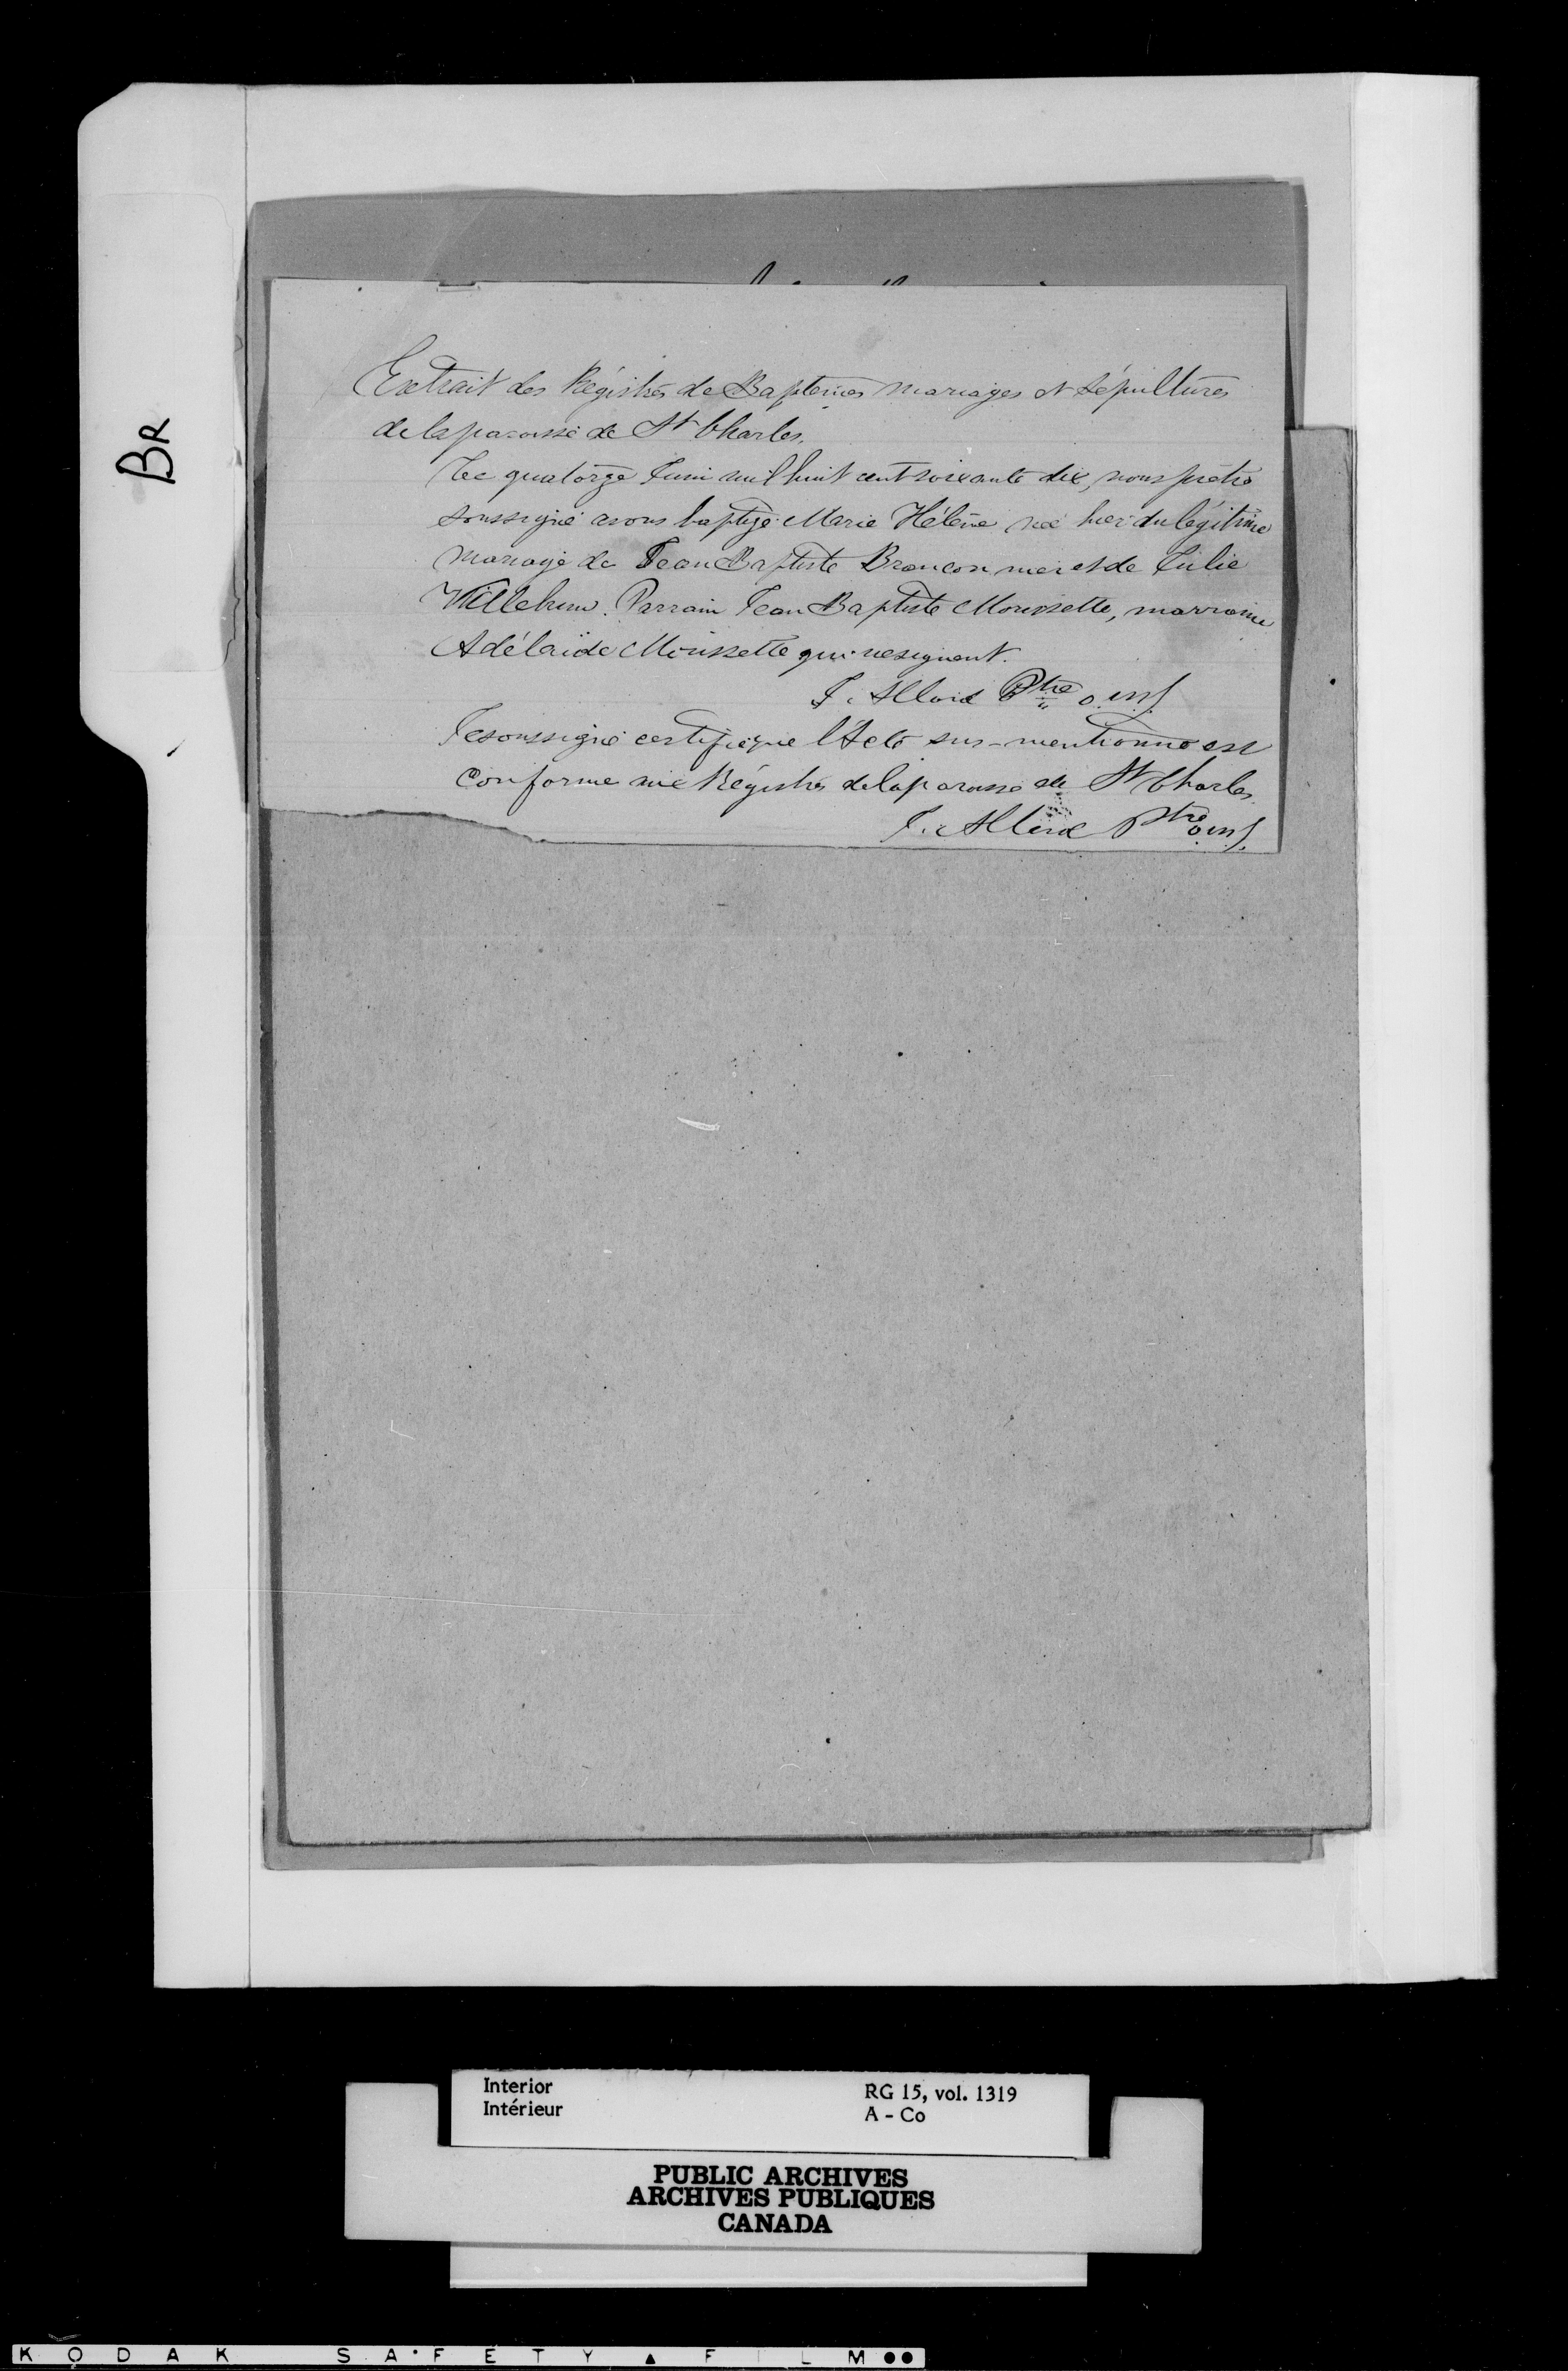 BR
Extrait des Régistres de Baptemes mariages et Sépultures
de la paroisse de St Charles.
Le quatorze Juin mil huit cent soixante dix, nous prêtre
soussigné avons baptizé Marie Hélène née hier du légitime
mariage de Jean Baptiste Brancon et de Julie
Villebrun. Parrain Jean Baptiste Morissette, marraine
Adélaïde Morissette qui ne signent.
J. Allard Ptre o.m.J.
Je soussigné certifie que l'Acte sus-mentionné est
conforme aux Régistres de la paroisse de St Charles
J. Allard Ptre o.m.J.
Interior
Intérieur
RG 15, vol. 1319
A - Co
PUBLIC ARCHIVES
ARCHIVES PUBLIQUES
CANADA
KODAK SAFETY ▲ FILM ●●